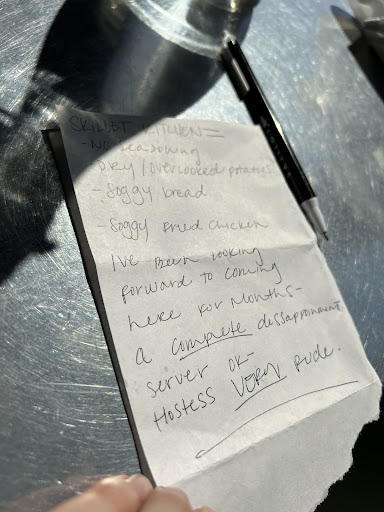 SKILLET KITCHEN =
- NO seasoning
DRY / overcooked potatoes
- Soggy bread
- Soggy Fried Chicken
I've been looking
forward to coming
here for months -
a complete dissapointment.
server ok -
Hostess VERY rude.